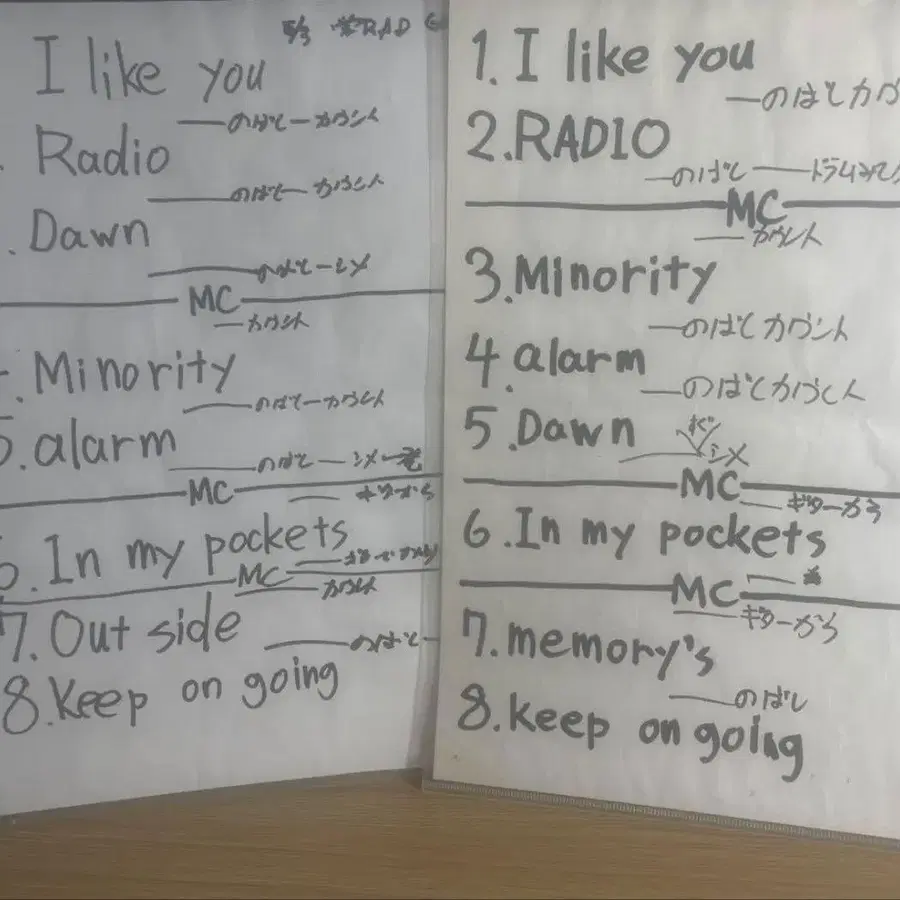 5/3 RAD
I like you
のばし ー カウント
Radio
のばし ー カウント
Dawn
シメ
MC
カウント
Minority
のばし ー カウント
5. alarm
のばし ー シメ
MC
ギターから
6. In my pockets
MC
カウント
7. Out side
のばし
8. Keep on going
1. I like you
のばしカウ
2. RADIO
のばし ー ドラム
MC
カウント
3. Minority
のばしカウント
4. alarm
のばしカウント
5. Dawn
シメ
MC
ギターから
6. In my pockets
MC
ギターから
7. memory's
のばし
8. keep on going